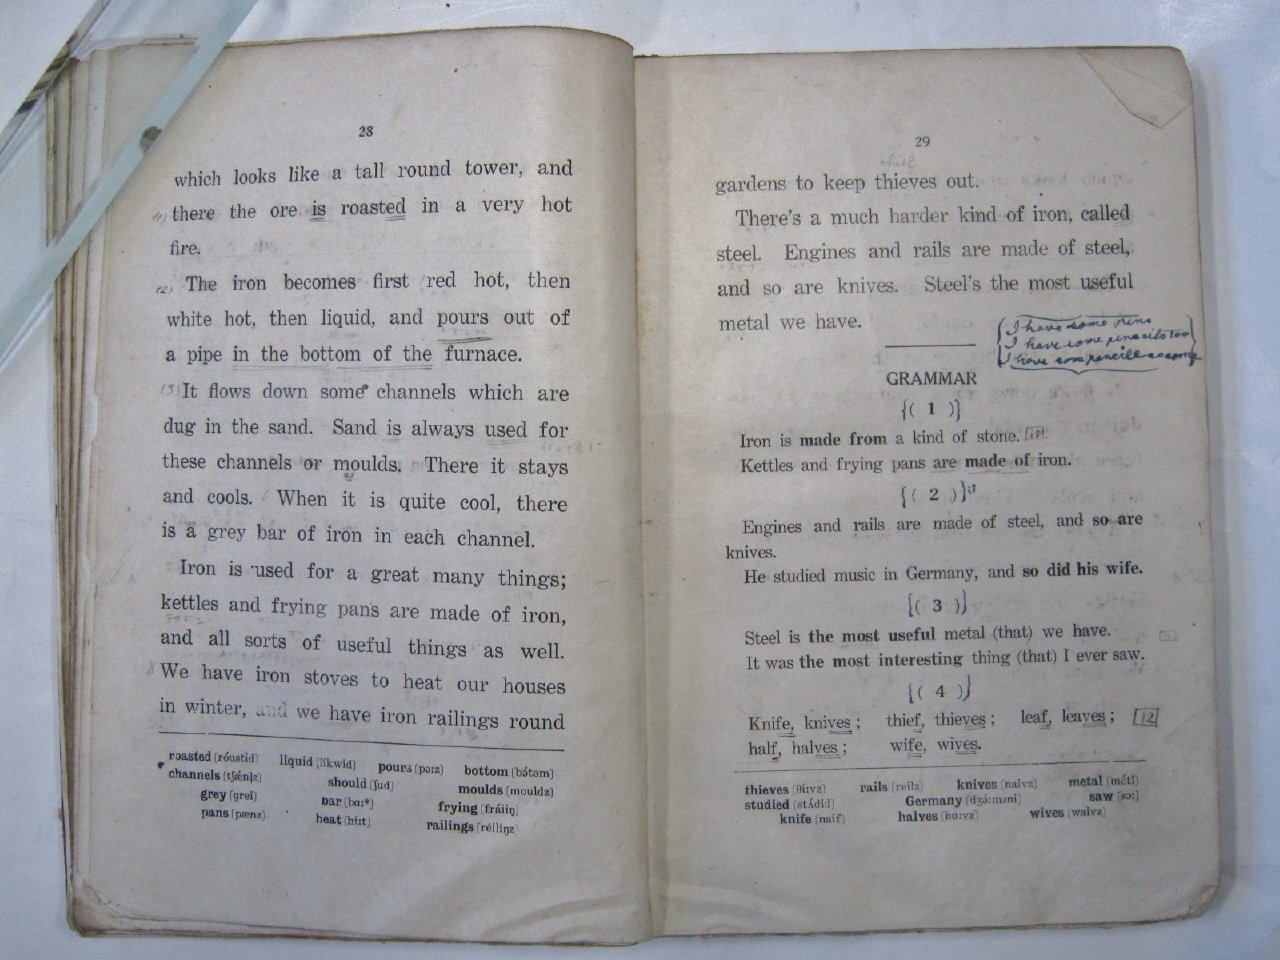 28
which looks like a tall round tower, and
(1) there the ore is roasted in a very hot
fire.
(2) The iron becomes first red hot, then
white hot, then liquid, and pours out of
a pipe in the bottom of the furnace.
(3) It flows down some channels which are
dug in the sand. Sand is always used for
these channels or moulds. There it stays
and cools. When it is quite cool, there
is a grey bar of iron in each channel.
Iron is used for a great many things;
kettles and frying pans are made of iron,
and all sorts of useful things as well.
We have iron stoves to heat our houses
in winter, and we have iron railings round
roasted [róustid] liquid [líkwid] pours [pɔːz] bottom [bɔ́təm]
channels [tʃǽnlz] should [ʃud] moulds [mouldz]
grey [grei] bar [bɑː*] frying [fráiiŋ]
pans [pænz] heat [hiːt] railings [réiliŋz]
29
thief
gardens to keep thieves out.
There's a much harder kind of iron, called
steel. Engines and rails are made of steel,
and so are knives. Steel's the most useful
metal we have.
I have some pens
I have some pencils too
GRAMMAR
{( 1 )}
Iron is made from a kind of stone.
Kettles and frying pans are made of iron.
{( 2 )}
Engines and rails are made of steel, and so are
knives.
He studied music in Germany, and so did his wife.
{( 3 )}
Steel is the most useful metal (that) we have.
It was the most interesting thing (that) I ever saw.
{( 4 )}
Knife, knives; thief, thieves; leaf, leaves; 12
half, halves; wife, wives.
thieves [θiːvz] rails [reilz] knives [naivz] metal [métl]
studied [stʌ́did] Germany [dʒə́ːməni] saw [sɔː]
knife [naif] halves [hɑːvz] wives [waivz]